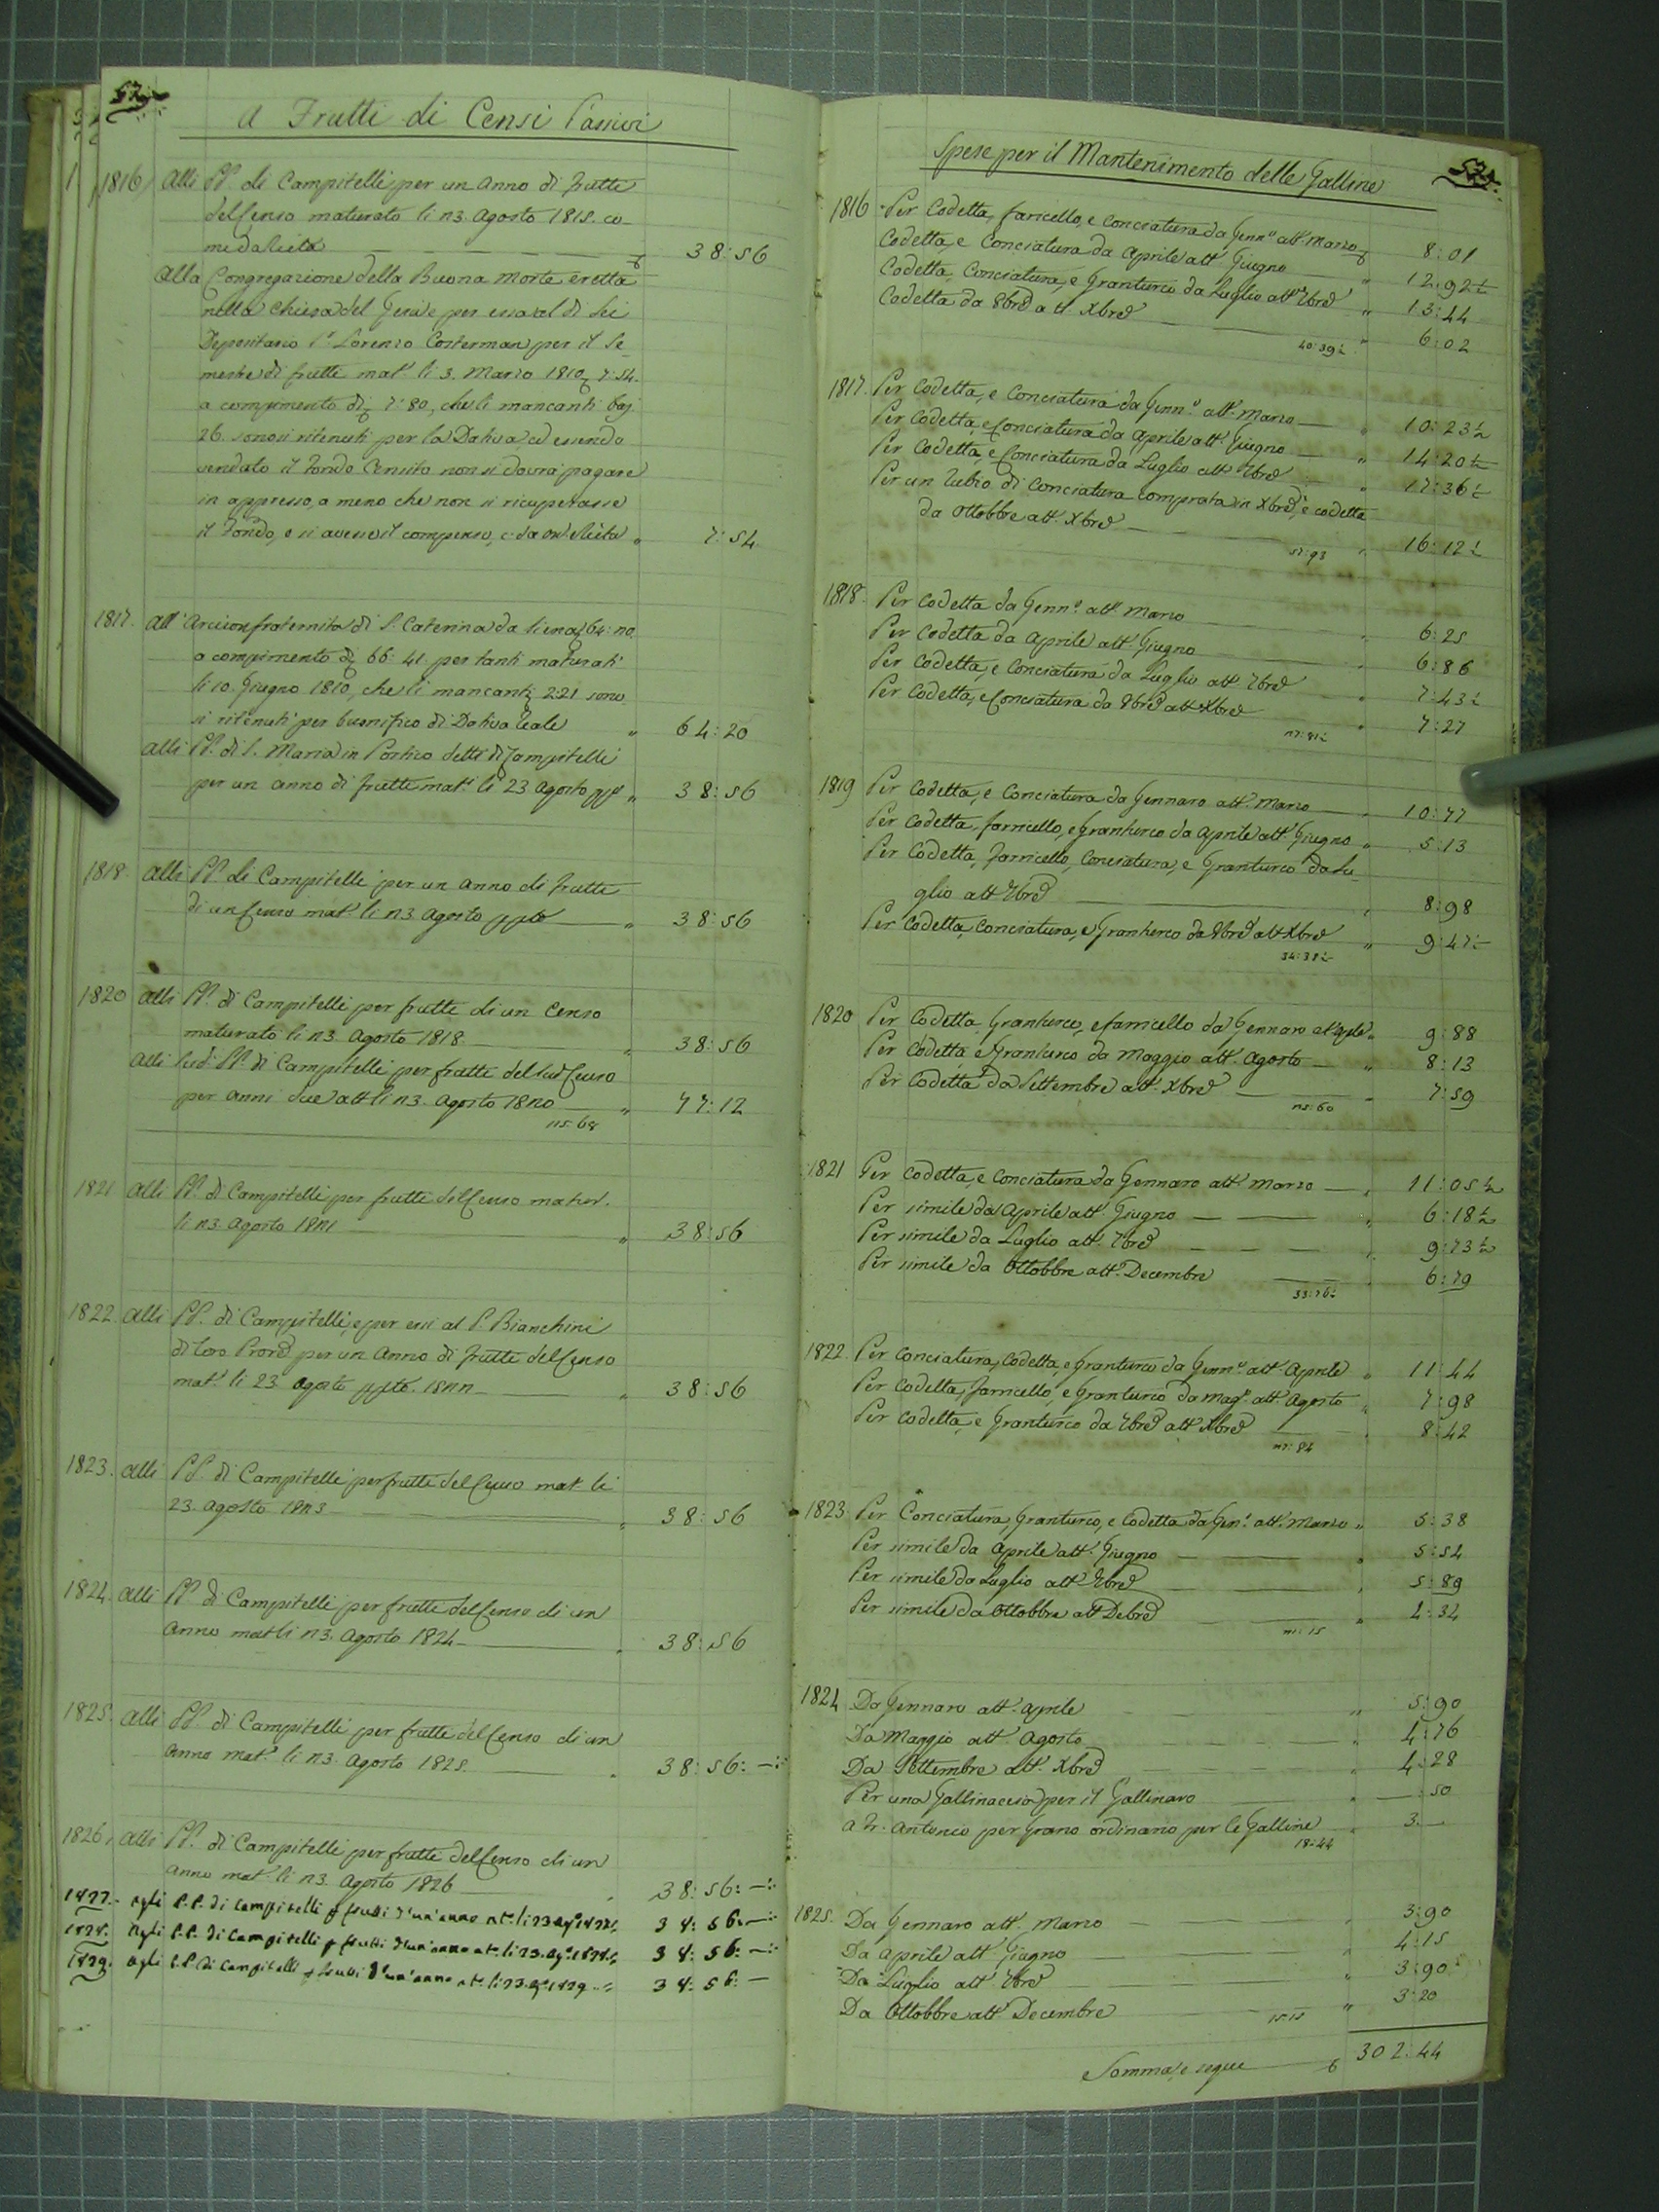 52
A Frutti di Censi Passivi
1816 Alli PP. di Campitelli per un Anno di frutti
del Censo maturato li 23. Agosto 1815. co-
me da Ricta 38:56
Alla Congregazione della Buona Morte eretta
nella Chiesa del Gesù e per essa al di Lei
Depositario Sr. Lorenzo Costerman per il Se-
mestre di frutti mat. li 3. Marzo 1810 7:54.
a compimento di 7:80, che li mancanti baj.
26. sonosi ritenuti per la Dativa ed essendo
vendato il fondo Censito non si dovrà pagare
in appresso, a meno che non si ricuperasse
il fondo, e si avesse il compenso, c. da 7:54
1817. All' Arciconfraternita di S. Caterina da Siena 64: 20.
a compimento di 66:41. per tanti maturati
li 10. Giugno 1810, che li mancanti 2:21 sono
si ritenuti per buonifico di Dativa Reale 64:20
Alli PP. di S. Maria in Portico detti di Campitelli
per un anno di frutti mat. li 23 Agosto 38:56
1818. Alli PP. di Campitelli per un Anno di frutti
di un Censo mat. li 23. Agosto 38:56
1820 Alli PP. di Campitelli per frutti di un Censo
maturato li 23. Agosto 1818 38:56
Alli sud. PP. di Campitelli per frutti del sud. Censo
per anni due att. li 23. Agosto 1820 77:12
115:68
1821 Alli PP. di Campitelli per frutti del Censo matur.
li 23. Agosto 1821 38:56
1822. Alli PP. di Campitelli, e per essi al P. Bianchini
di loro Prore per un Anno di frutti del Censo
mat. li 23. Agosto 1822 38:56
1823. Alli PP. di Campitelli per frutti del Censo mat. li
23. Agosto 1823 38:56
1824. Alli PP. di Campitelli per frutti del Censo di un
Anno mat. li 23. Agosto 1824 38:56
1825. Alli PP. di Campitelli per frutti del Censo di un
Anno mat. li 23. Agosto 1825. 38:56:—
1826, Alli PP. di Campitelli per frutti del Censo di un
Anno mat. li 23. Agosto 1826 38:56:—
1827. Agli P.P. di Campitelli p frutti d'un'anno mt. li 23 Ago. 1827 38:56:—
1828. Agli P.P. di Campitelli p frutti d'un'anno mt. li 23. Ago. 1828 38:56:—
1829. Agli P.P. di Campitelli p frutti d'un'anno mt. li 23. Ago. 1829 38:56:—
52
Spese per il Mantenimento delle Galline
1816 Per Codetta, farricello, e Conciatura da Genn.o att. Marzo 8:01
Codetta, e Conciatura da Aprile att. Giugno 12:92½
Codetta, Conciatura, e Granturco da Luglio att. 7bre 13:44
Codetta da 8bre att. Xbre 6:02
40:39½
1817. Per Codetta, e Conciatura da Genn.o att. Marzo 10:23½
Per Codetta, e Conciatura da Aprile att. Giugno 14:20½
Per Codetta, e Conciatura da Luglio att. 7bre 17:36½
Per un Rubio di Conciatura comprata in Xbre, e codetta
da Ottobbre att. Xbre 16:12½
57:93
1818. Per Codetta da Genn.o att. Marzo 6:25
Per Codetta da Aprile att. Giugno 6:86
Per Codetta, e Conciatura da Luglio att. 7bre 7:43½
Per Codetta, e Conciatura da 8bre att. Xbre 7:27
27:81½
1819 Per Codetta, e Conciatura da Gennaro att. Marzo 10:77
Per Codetta, farricello, e Granturco da Aprile att. Giugno 5:13
Per Codetta, farricello, Conciatura, e Granturco da Lu-
glio att. 7bre 8:98
Per Codetta, Conciatura, e Granturco da 8bre att. Xbre 9:47½
34:35½
1820 Per Codetta, Granturco, e farricello da Gennaro a tt. Aple 9:88
Per Codetta e Granturco da Maggio att. Agosto 8:13
Per Codetta da Settembre att. Xbre 7:59
25:60
1821 Per Codetta, e Conciatura da Gennaro att. Marzo 11:05½
Per simile da Aprile att. Giugno 6:18½
Per simile da Luglio att. 7bre 9:73½
Per simile da Ottobbre att. Decembre 6:79
33:76½
1822. Per Conciatura, Codetta, e Granturco da Genn.o att. Aprile 11:44
Per Codetta, farricello, e Granturco da Mag. att. Agosto 7:98
Per Codetta, e Granturco da 7bre att. Xbre 8:42
27:84
1823. Per Conciatura, Granturco, e Codetta da Gen. att. Marzo 5:38
Per simile da Aprile att. Giugno 5:54
Per simile da Luglio att. 7bre 5:89
Per simile da Ottobbre att. Debre 4:34
21:15
1824 Da Gennaro att. Aprile 5:90
Da Maggio att. Agosto 4:76
Da Settembre att. Xbre 4:28
Per una Gallinaccia per il Gallinaro —:50
a Fr. Antonio per grano ordinario per le Galline 3:—
18:44
1825. Da Gennaro att. Marzo 3:90
Da Aprile att. Giugno 4:15
Da Luglio att. 7bre 3:90
Da Ottobbre att. Decembre 3:20
15:15
Somma, e segue 302:44